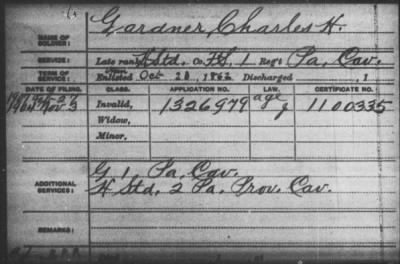 Gardner, Charles H.
NAME OF SOLDIER:
SERVICE: Late rank, H Std, Co. F.S., 1 Reg't Pa. Cav.
TERM OF SERVICE: Enlisted Oct 1862 Discharged , 1
DATE OF FILING. CLASS. APPLICATION NO. LAW. CERTIFICATE NO.
Invalid, 1326979 age g 1100335
Widow,
Minor,
ADDITIONAL SERVICES: G 1 Pa. Cav.
H Std, 2 Pa. Prov. Cav.
REMARKS: